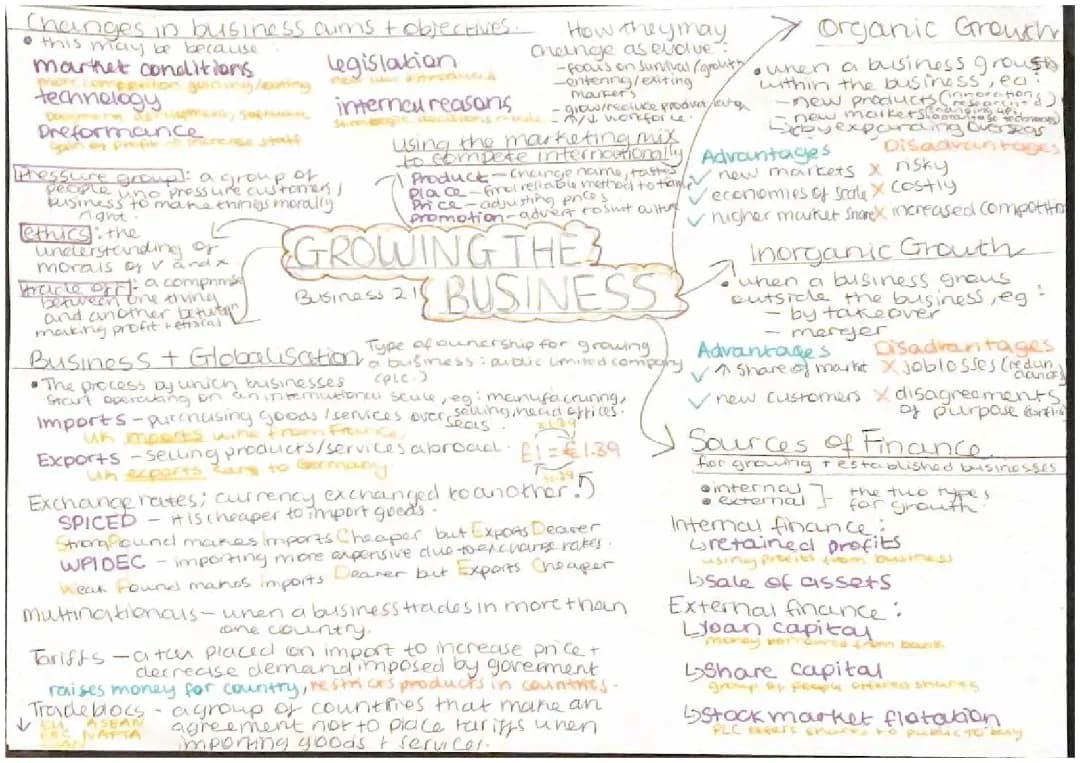 Changes in business aims + objectives
• this may be because:
market conditions
technology
Preformance
legislation
internal reasons
How they may
change as evolve:
- focus on survival/growth
- entering/exiting
markers
- grow/reduce product
- ↑/↓ workforce.
Using the marketing mix
to compete internationally
Product - change name, tastes
Place - find reliable method to
Price - adjusting prices
promotion - advert to suit culture
Pressure group: a group of
people who pressure customers/
business to make things morally
right.
ethics: the
understanding of
morals of ✓ and x
trade off: a
between one thing
and another between
making profit + ethical
GROWING THE
BUSINESS
Business 2.1
Organic Growth
• when a business grows
within the business, eg:
- new products (innovation,
research)
- new markets
↳ by expanding overseas
Advantages
✓ new markets
✓ economies of scale
✓ higher market share
Disadvantages
x risky
x costly
x increased
Inorganic Growth
• when a business grows
outside the business, eg:
- by takeover
- merger
Advantages
✓ ↑ share of market
✓ new customers
Disadvantages
x job losses
x disagreements
of purpose
Business + Globalisation
• The process by which businesses
start operating on an international scale, eg: manufacturing,
selling, head offices.
Type of ownership for growing
a business: public limited company
(plc.)
Imports - purchasing goods/services over
seas.
UK imports wine from France
Exports - selling products/services abroad.
UK exports cars to Germany
x1.39
£1 = €1.39
Exchange rates; currency exchanged to another.
SPICED - it is cheaper to import goods.
Strong Pound makes Imports Cheaper but Exports Dearer
WPIDEC - importing more expensive due to exchange rates.
Weak Pound makes Imports Dearer but Exports Cheaper
Multinationals - when a business trades in more than
one country.
Tariffs - a tax placed on import to increase price +
decrease demand imposed by goverment
raises money for country, restricts products in countries.
Tradeblocs - a group of countries that make an
agreement not to place tariffs when
importing goods + services.
EU ASEAN
NAFTA
Sources of Finance
for growing + established businesses
• internal
• external
the two types
for growth.
Internal finance:
↳ retained profits
using profits from business
↳ Sale of assets
External finance:
↳ loan capital
money borrowed from bank
↳ Share capital
group of people offered shares
↳ Stock market flotation
PLC offers shares to public to buy